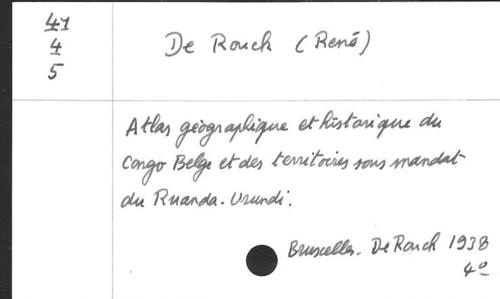 41
4
5
De Rouck (René)
Atlas géographique et historique du
Congo Belge et des territoires sous mandat
du Ruanda-Urundi.
Bruxelles. De Rouck 1938
4º